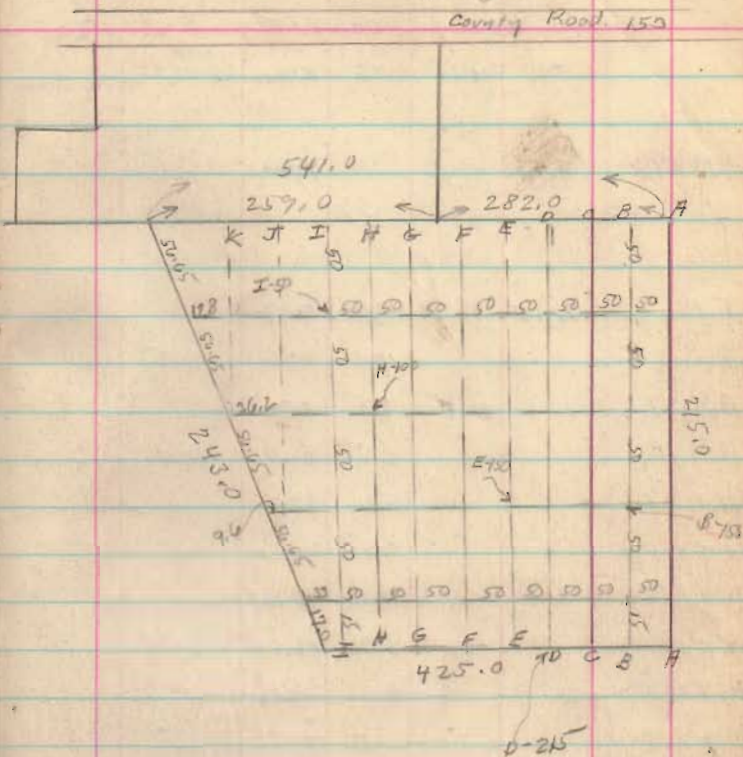 County Road. 150
541.0
259.0 282.0
K J I H G F E D C B A
56.65 50 50
I-50
178 50 50 50 50 50 50 50 50
56.65 50 50
H-100
26.2
215.0
243.0 56.65 50 50
E-150
9.6 B-150
56.65 50 50
50 50 50 50 50 50 50 50
17.0 15 15
I H G F E D C B A
425.0
D-215